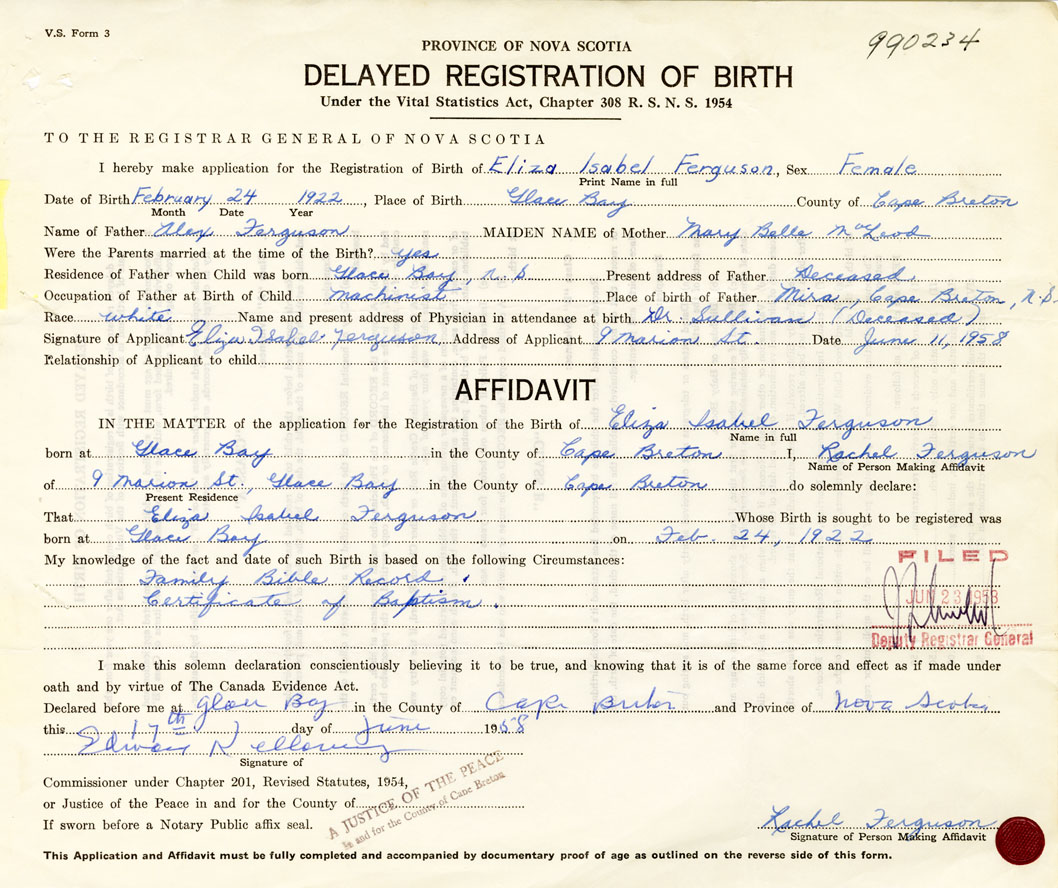 V.S. Form 3
990234
PROVINCE OF NOVA SCOTIA
DELAYED REGISTRATION OF BIRTH
Under the Vital Statistics Act, Chapter 308 R. S. N. S. 1954
TO THE REGISTRAR GENERAL OF NOVA SCOTIA
I hereby make application for the Registration of Birth of Eliza Isabel Ferguson, Sex Female
Print Name in full
Date of Birth February 24 1922, Place of Birth Glace Bay County of Cape Breton
Month Date Year
Name of Father Alex Ferguson MAIDEN NAME of Mother Mary Belle McLeod
Were the Parents married at the time of the Birth? Yes
Residence of Father when Child was born Glace Bay, N.S Present address of Father Deceased.
Occupation of Father at Birth of Child machinist Place of birth of Father Mira, Cape Breton, N.S.
Race white Name and present address of Physician in attendance at birth Dr. Sullivan (Deceased)
Signature of Applicant Eliza Isabel Ferguson, Address of Applicant 9 Marion St. Date June 11, 1958
Relationship of Applicant to child
AFFIDAVIT
IN THE MATTER of the application for the Registration of the Birth of Eliza Isabel Ferguson
Name in full
born at Glace Bay in the County of Cape Breton I, Rachel Ferguson
Name of Person Making Affidavit
of 9 Marion St., Glace Bay in the County of Cape Breton do solemnly declare:
Present Residence
That Eliza Isabel Ferguson Whose Birth is sought to be registered was
born at Glace Bay on Feb. 24, 1922
My knowledge of the fact and date of such Birth is based on the following Circumstances:
Family Bible Record.
Certificate of Baptism.
FILED
JUN 23 1958
Deputy Registrar General
I make this solemn declaration conscientiously believing it to be true, and knowing that it is of the same force and effect as if made under
oath and by virtue of The Canada Evidence Act.
Declared before me at Glace Bay in the County of Cape Breton and Province of Nova Scotia
this 17th day of June 1958
Edward
Signature of
Commissioner under Chapter 201, Revised Statutes, 1954,
or Justice of the Peace in and for the County of
If sworn before a Notary Public affix seal.
A JUSTICE OF THE PEACE
in and for the County of Cape Breton
Rachel Ferguson
Signature of Person Making Affidavit
This Application and Affidavit must be fully completed and accompanied by documentary proof of age as outlined on the reverse side of this form.